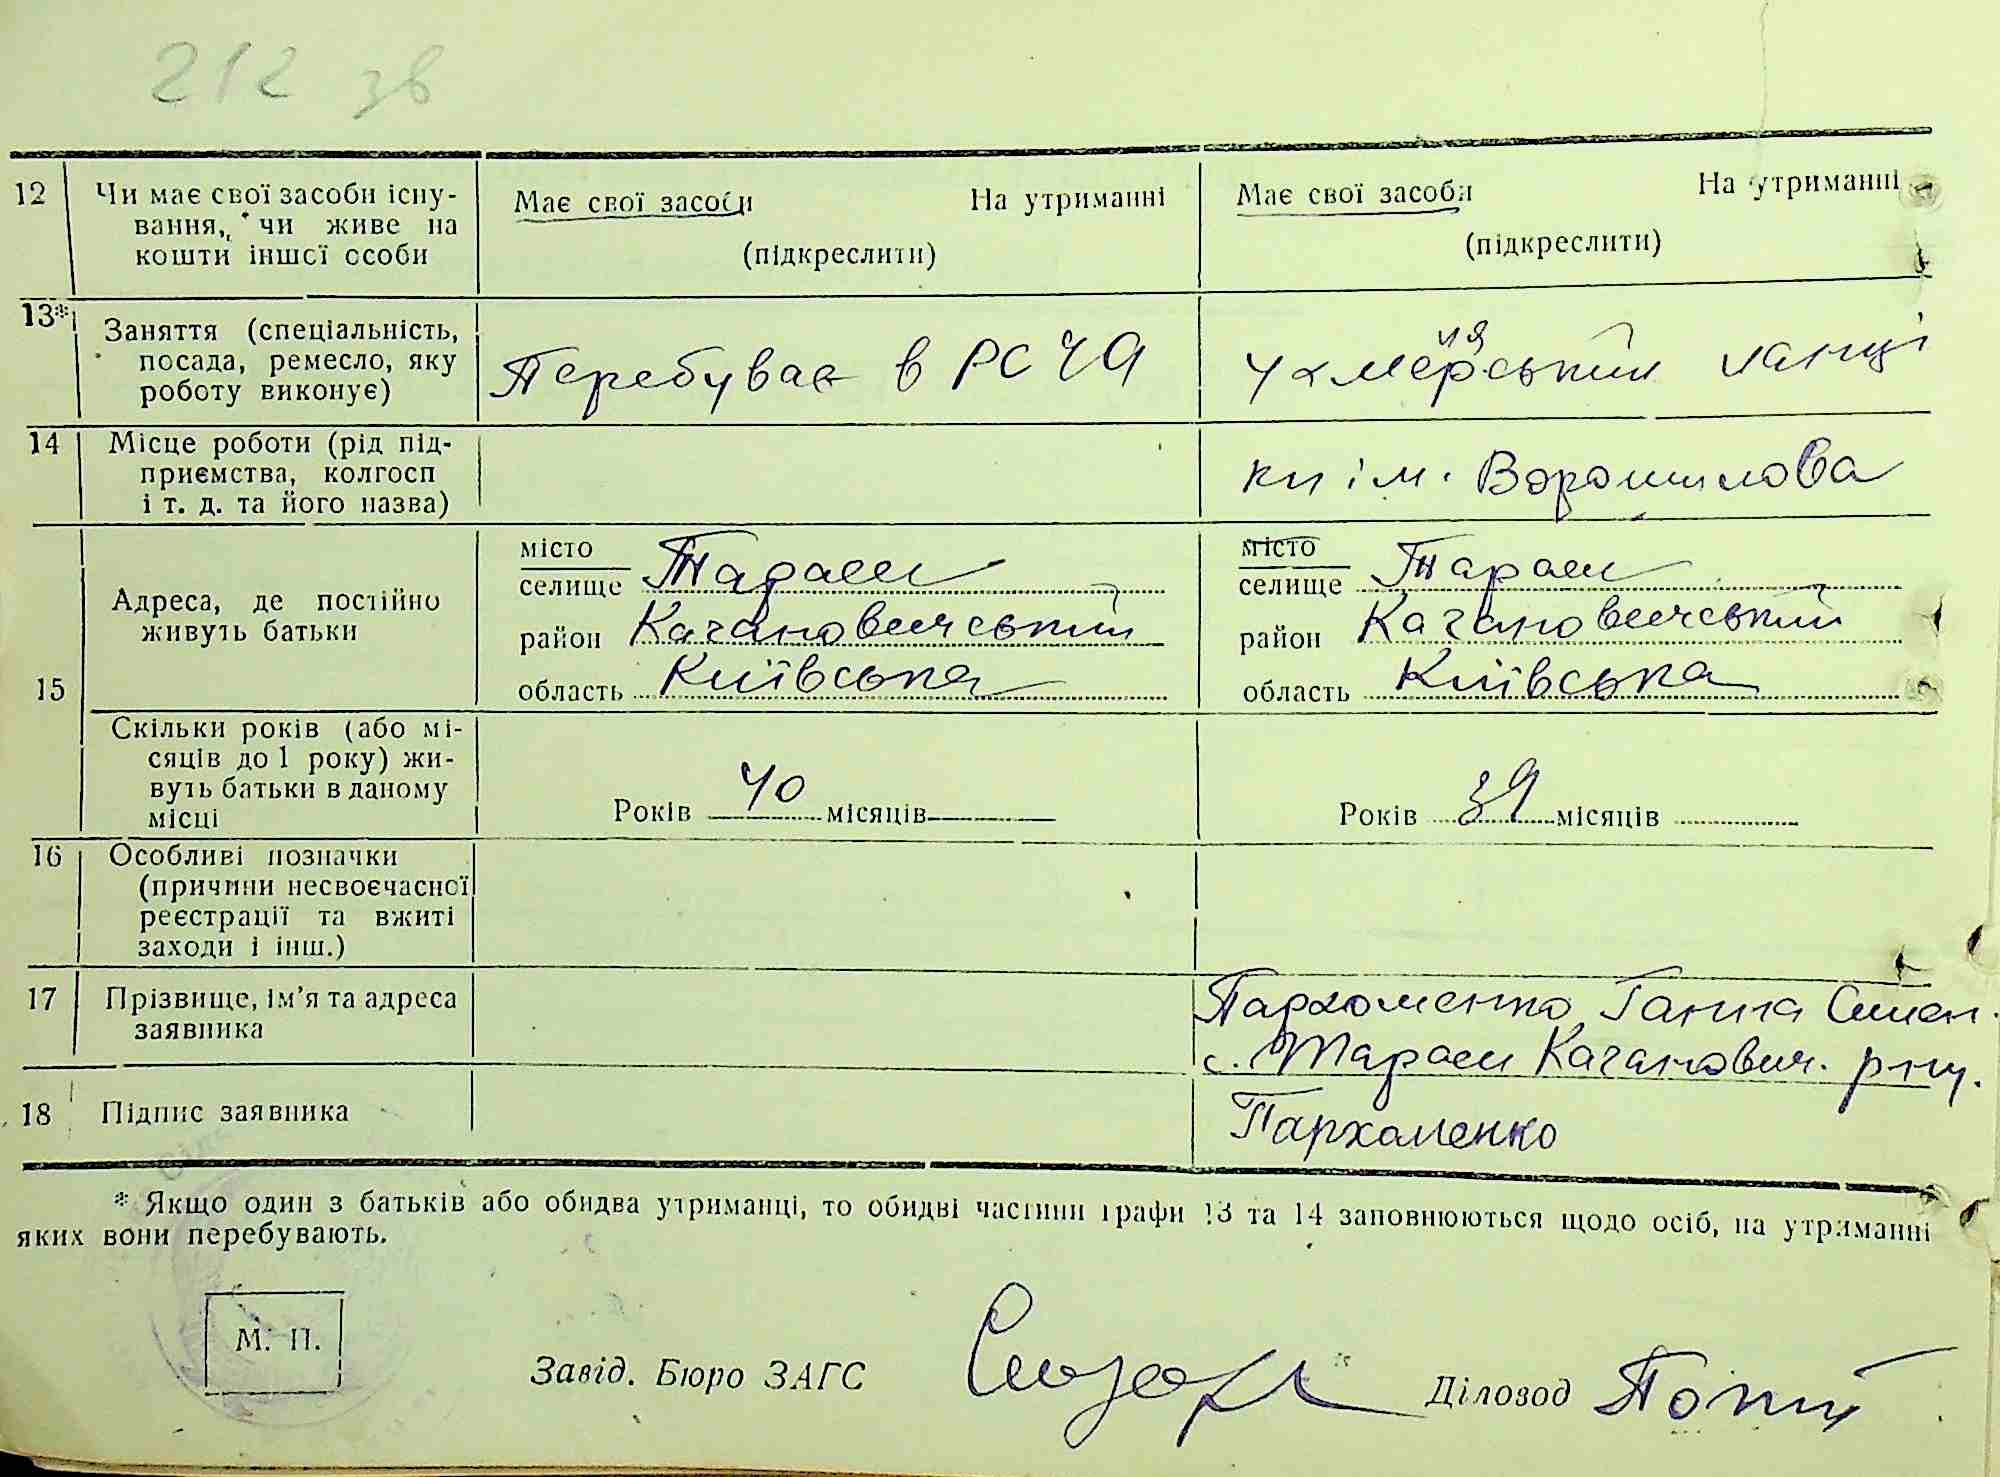 212 зв
12 Чи має свої засоби існу-
вання, чи живе на
кошти іншої особи
Має свої засоби На утриманні
(підкреслити)
Має свої засоби На утриманні
(підкреслити)
13* Заняття (спеціальність,
посада, ремесло, яку
роботу виконує)
Перебуває в РСЧА
ланці
14 Місце роботи (рід під-
приємства, колгосп
і т. д. та його назва)
ім. Ворошилова
15 Адреса, де постійно
живуть батьки
місто
селище Тараси
район Кагановичський
область Київська
місто
селище Тараси
район Кагановичський
область Київська
Скільки років (або мі-
сяців до 1 року) жи-
вуть батьки в даному
місці
Років 40 місяців
Років 39 місяців
16 Особливі позначки
(причини несвоєчасної
реєстрації та вжиті
заходи і інш.)
17 Прізвище, ім'я та адреса
заявника
Пархоменко Ганна Семен.
с. Тараси Каганович. р-ну.
18 Підпис заявника
Пархоменко
* Якщо один з батьків або обидва утриманці, то обидві частини графи 13 та 14 заповнюються щодо осіб, на утриманні
яких вони перебувають.
М. П.
Завід. Бюро ЗАГС
Діловод